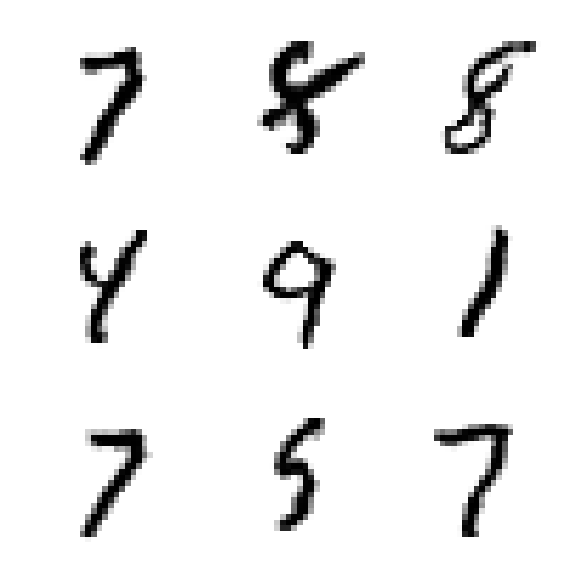 7 8 8
4 9 1
7 5 7